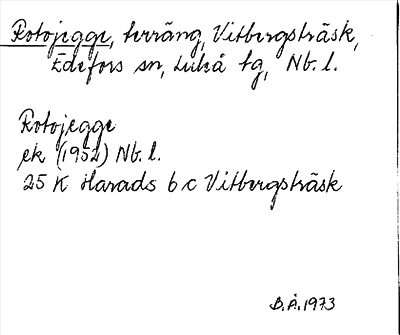 Rotojegge, terräng, Vitbergsträsk,
Edefors sn, Luleå tg, Nb. l.
Rotojegge
ek (1952) Nb. l.
25 K Harads b c Vitbergsträsk
B.Å. 1973